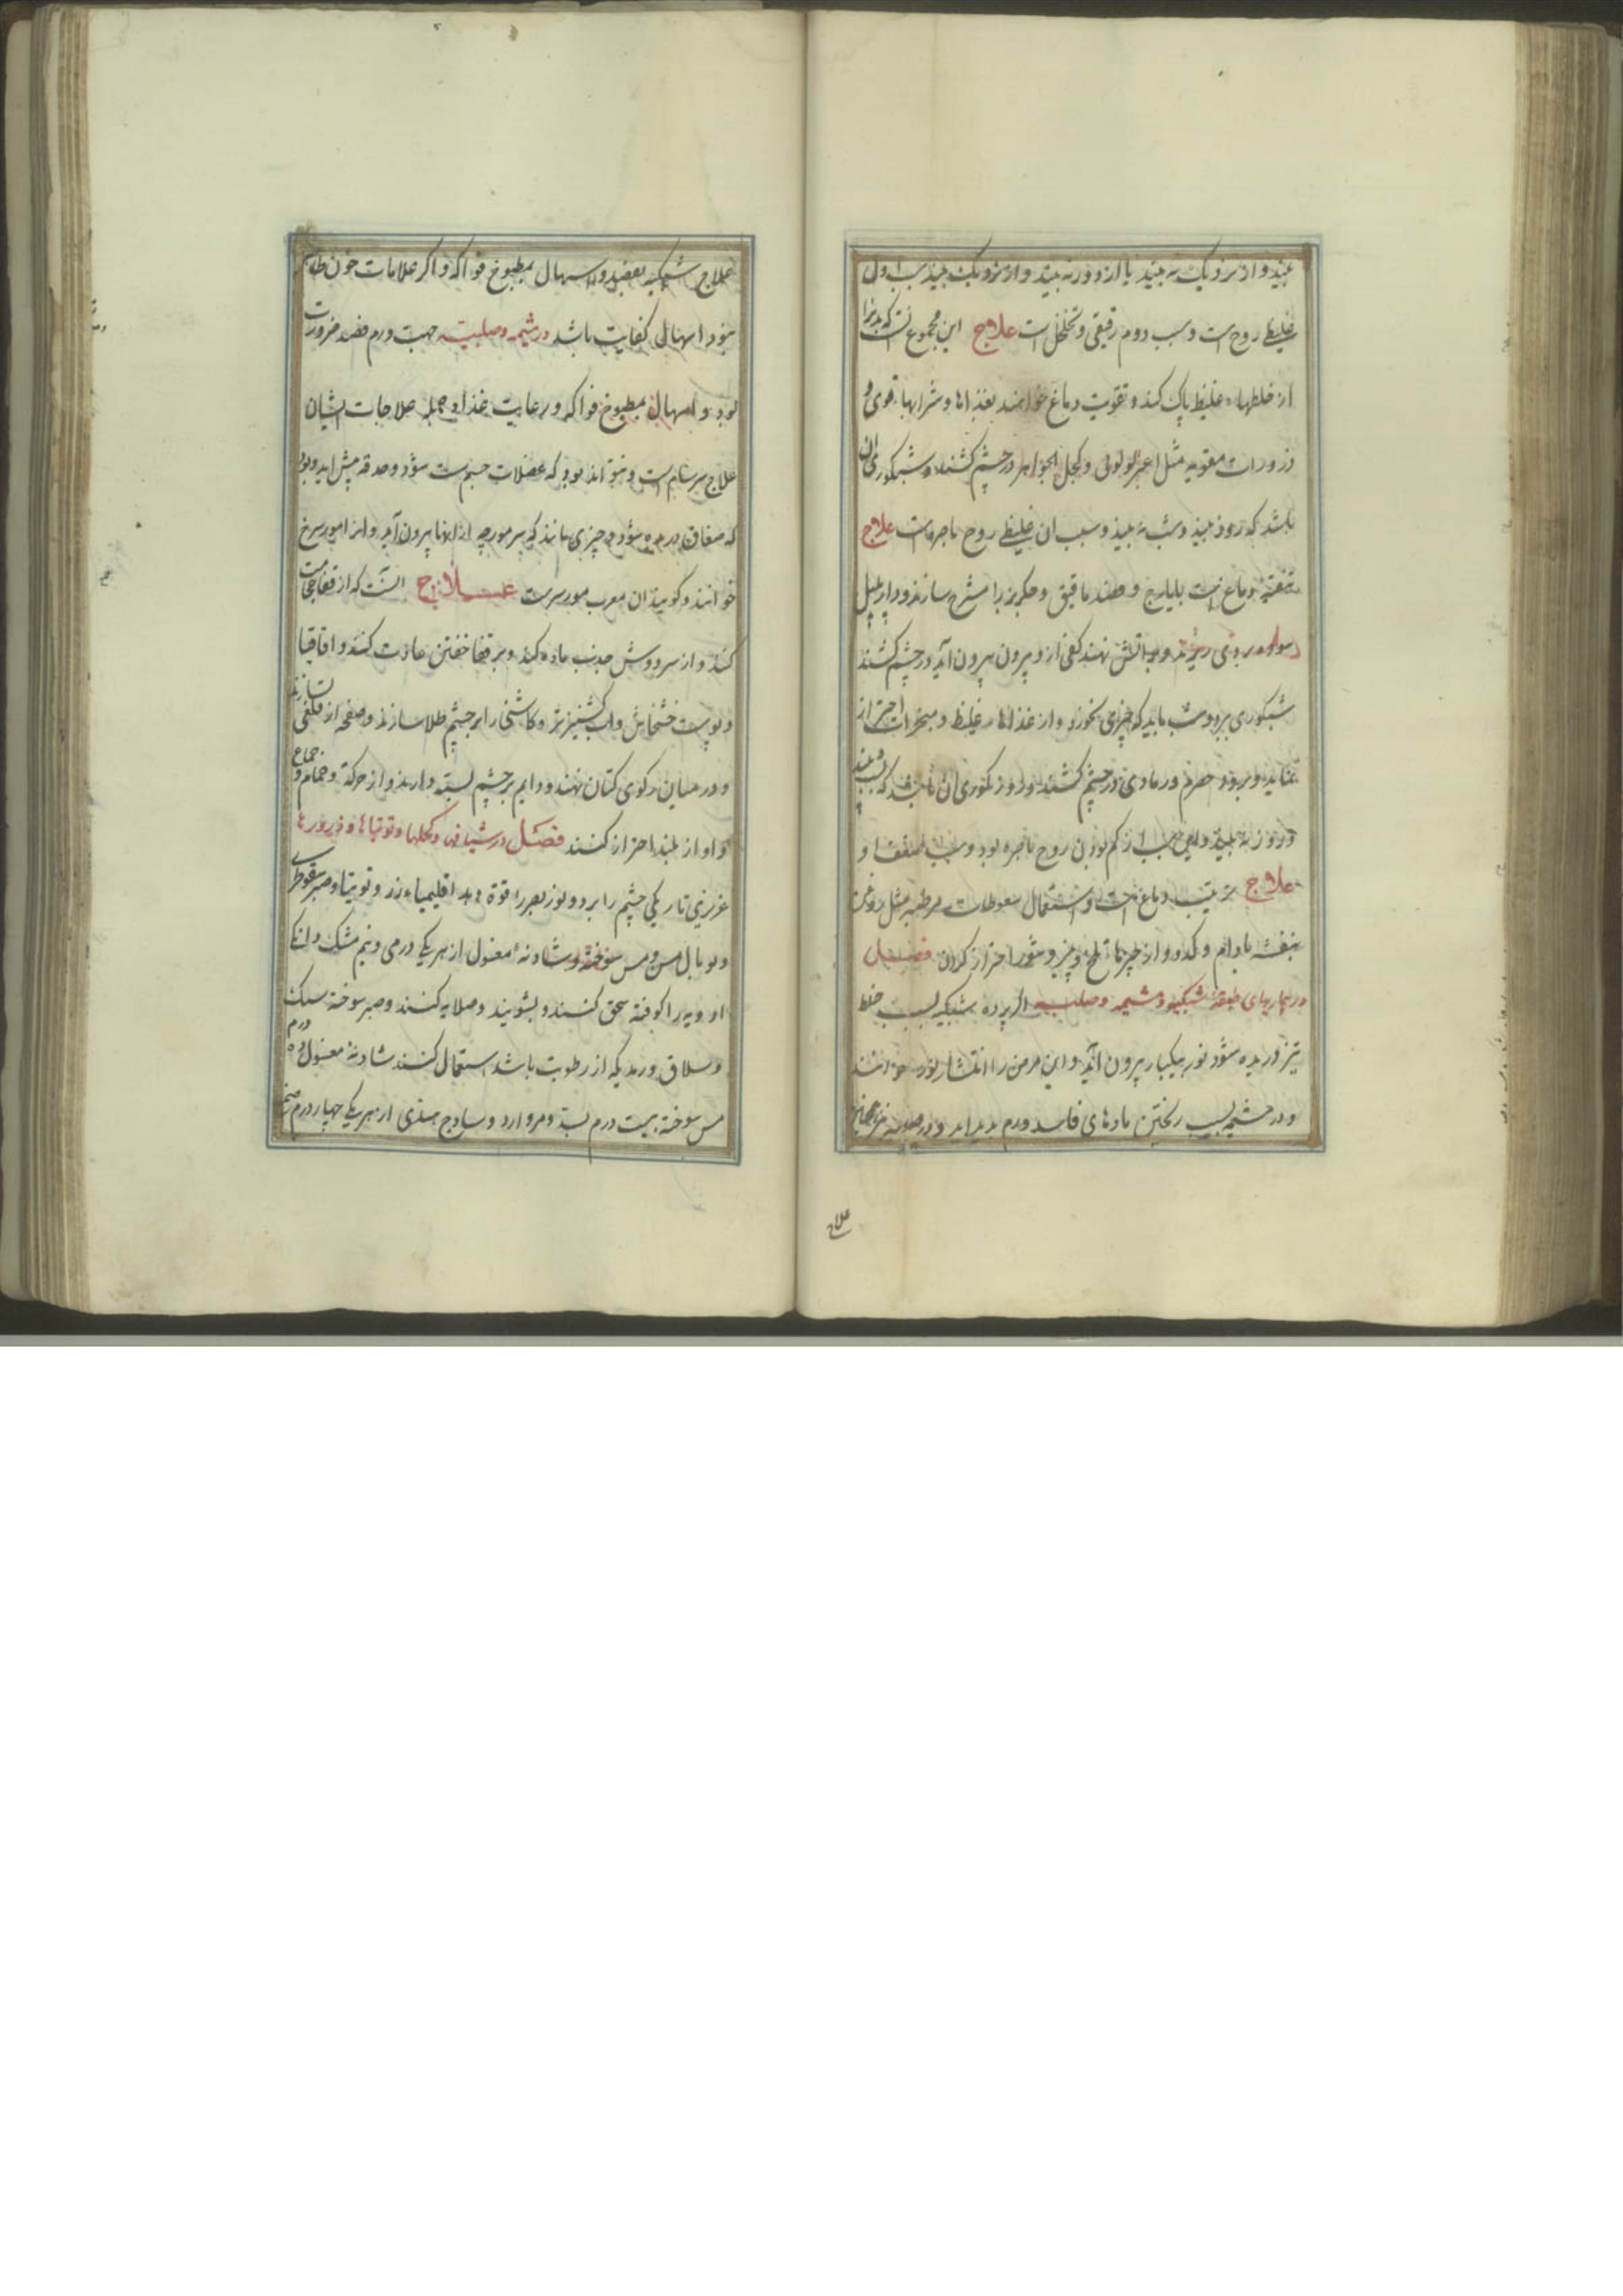 بیند و از نزدیک نه بیند یا از دور نه بیند و از نزدیک بیند سبب اول
غلیظی روح است و سبب دوم رقیقی و تخلخل است علاج این مجموع آنست که بدن را
از خلطهاء غلیظ پاک کند و تقویت دماغ خوانند بغذاها و شرابها قوی و
ذرورات مقویه مثل لولوی و کحل الجواهر در چشم کشند و شبکوری آن
باشد که روز بیند و شب نه بیند و سبب آن غلیظی روح باصره است علاج
تنقیه دماغ است بایارج و فصد و جکر بز را مشرح سازند و دار فلفل
سوده بروی ریزند و بر آتش نهند کفی از و بیرون آید در چشم کشند
شبکوری برود و شب باید که چیزی نخورد و از غذاها غلیظ و مبخرات احتراز
نماید و برود حصرم و رمادی در چشم کشند و روزکوری آن باشد که شب بیند
و روز نه بیند و این سبب از کم بودن روح باصره بود و سبب ضعف او
علاج ترتیب دماغ است و استعمال سعوطات مرطبه مثل روغن
بنفشه بادام و کدو و از چیزها تلخ و تیز و شور احتراز کردن فصل
در بیماریهای طبقه شبکیه و مشیمه و صلبیه اگر پرده شبکیه بسبب خلط
تیز دریده شود نور بیکبار بیرون آید و این مرض را انتشار نور خوانند
و در مشیمه بسبب ریختن مادهای فاسد ورم پدید آید و در صلبیه نیز همچنین
علاج
علاج شبکیه بفصد و اسهال بمطبوخ فواکه و اگر علامات خون ظاهر
نبود اسهال کفایت باشد در مشیمه و صلبیه جهت ورم فصد ضرورت
بود و اسهال بمطبوخ فواکه و رعایت غذا و جمله علاجات ایشان
علاج سرسام است و بتواند بود که عضلات جسم سست شود و حدقه پیش آید و بود
که صفاق دریده شود و چیزی مانند که سر مورچه از آنجا بیرون آید و آنرا مورسرج
خوانند و کویند آن معرب مورسرست علاج آنست که از قفا حجامت
کند و از سر دوش جذب ماده کند و بر قفا خفتن عادت کنند و اقاقیا
و پوست خشخاش و آب کشنیز تر و کاسنی را بر چشم طلا سازند و صفحه از قلعی بسازند
و در میان رکوی کتان نهند و دایم بر چشم بسته دارند و از حرکة و حمام و جماع
و آواز بلند احتراز کنند فصل در شیافها و کحلها و توتیاها و ذرورها
عزیزی تاریکی چشم را برد و نور بصر را قوة دهد اقلیمیاء زر و توتیا و صبر سقوطری
و توبال مس و مس سوخته و شادنه مغسول از هر یکی درمی و نیم مشک دانکی
ادویه را کوفته سحق کنند و بشویند و صلایه کنند و صبر سوخته سبک
و سلاق و رمدیکه از رطوبت باشد استعمال کنند شادنه مغسول ده درم
مس سوخته بیست درم بسد و مروارد و ساذج هندی از هر یکی چهار درم صمغ